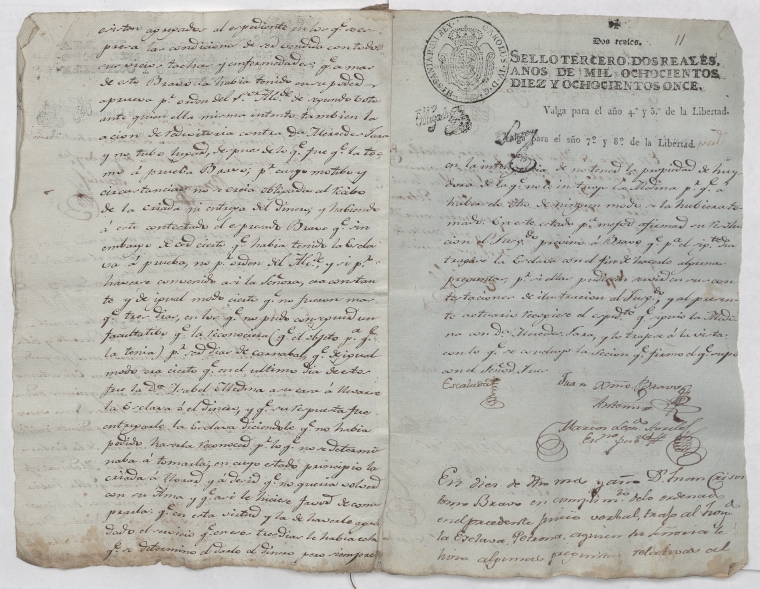 estan agregados al expediente en los q.e se es-
presa las condiciones de ser vendida con todos
sus vicios tachas y enfermedades; q.e a mas
de esto Bravo la había tenido en su poder
aprueva p.r orden del S.r Alc.e de segundo voto
ante quien ella misma intentó tambien la
acion de redivitoria contra D.a Mercedes Jara
y no tubo lugar, despues de lo q.e fue q.e la to-
mó á prueba Bravo; p.r cuyo motibo y
circunstancias no se creia obligada al recibo
de la criada ni entrega del dinero; y habiendo
á esto contestado el espresado Bravo q.e sin
embargo de ser cierto q.e habia tenido la Escla-
va á prueba, no p.r orden del Alc.e y si p.r
haverse convenido asi la Señora, era constante
y de igual modo cierto q.e no fueron mas
q.e tres dias, en los q.e no pudo conseguir un
facultatibo q.e la reconociera (q.e el obgeto p.a q.e
la tomó) p.r ser dias de carnabal, q.e de igual
modo era cierto q.e en el ultimo dia de estos
fue la D.a Isabel Medina a su casa á llevarse
la Esclava ó el dinero, y q.e su respuesta fue
entregarle la Esclava diciendole q.e no habia
podido hacerla reconocer p.r lo q.e no se determi-
naba á tomarla, en cuyo estado principió la
criada á llorar y á decir q.e no queria volver
con su Ama y q.e asi le hiciese favor de com-
prarla: q.e en esta virtud y la de haverle agra-
dado el servicio q.e en tres dias le habia echo
q.e se determinó el darle el dinero pero siempre
11
Dos reales.
HISPANIARUM REX
CAROLUS IV D. G.
SELLO TERCERO: DOS REALES,
AÑOS DE MIL OCHOCIENTOS
DIEZ Y OCHOCIENTOS ONCE.
Valga para el año 4.º y 5.º de la Libertad.
Valga para el año 7.º y 8.º de la Libertad.
en la inteligencia de no tener la propiedad de huy-
dora de la q.e no le instruyó la Medina p.r q.e á
haberselo dho. de ningun modo se la hubiera to-
mado. En este estado p.a mejor afirmar su resolu-
cion el Juzg.do previno á Bravo q.e p.a el sig.te dia
tragese la Esclava con el fin de hacerle algunas
preguntas, p.r si ellas podian servir en sus con-
testaciones de ilustracion al Juzg.do y al presente
actuario recogiese el esped.te q.e siguió la Medi-
na con D.a Mercedes Jara, y lo tragese á la vista
con lo q.e se concluyó la secion q.e firmó el q.e supo
con el Señor Juez
Escalada
Juan Xmo. Bravo
Antemi
Marcos Leon.
Es.no
En dies de dho mes y año D.n Juan Crisos-
tomo Bravo en cumplim.to de lo ordenado
en el precedente juicio verbal, trajo al Juzg.do
la Esclava, Petrona, a quien su Señoria le
hizo algunas preguntas relatibas al